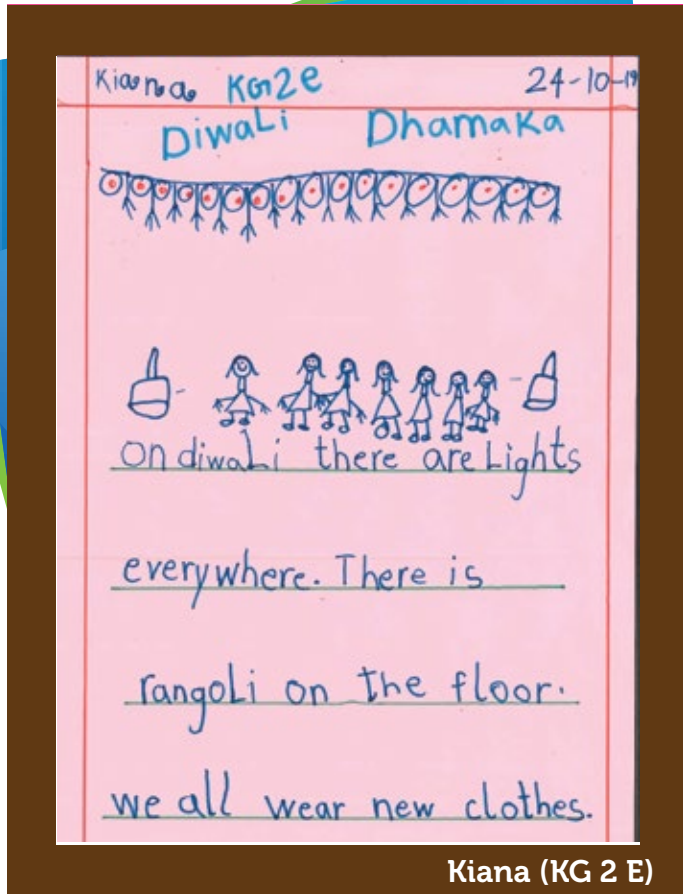 Kiana KG2e 24-10-19
DiwaLi Dhamaka
On diwaLi there are Lights
everywhere. There is
rangoLi on the floor.
we all wear new clothes.
Kiana (KG 2 E)